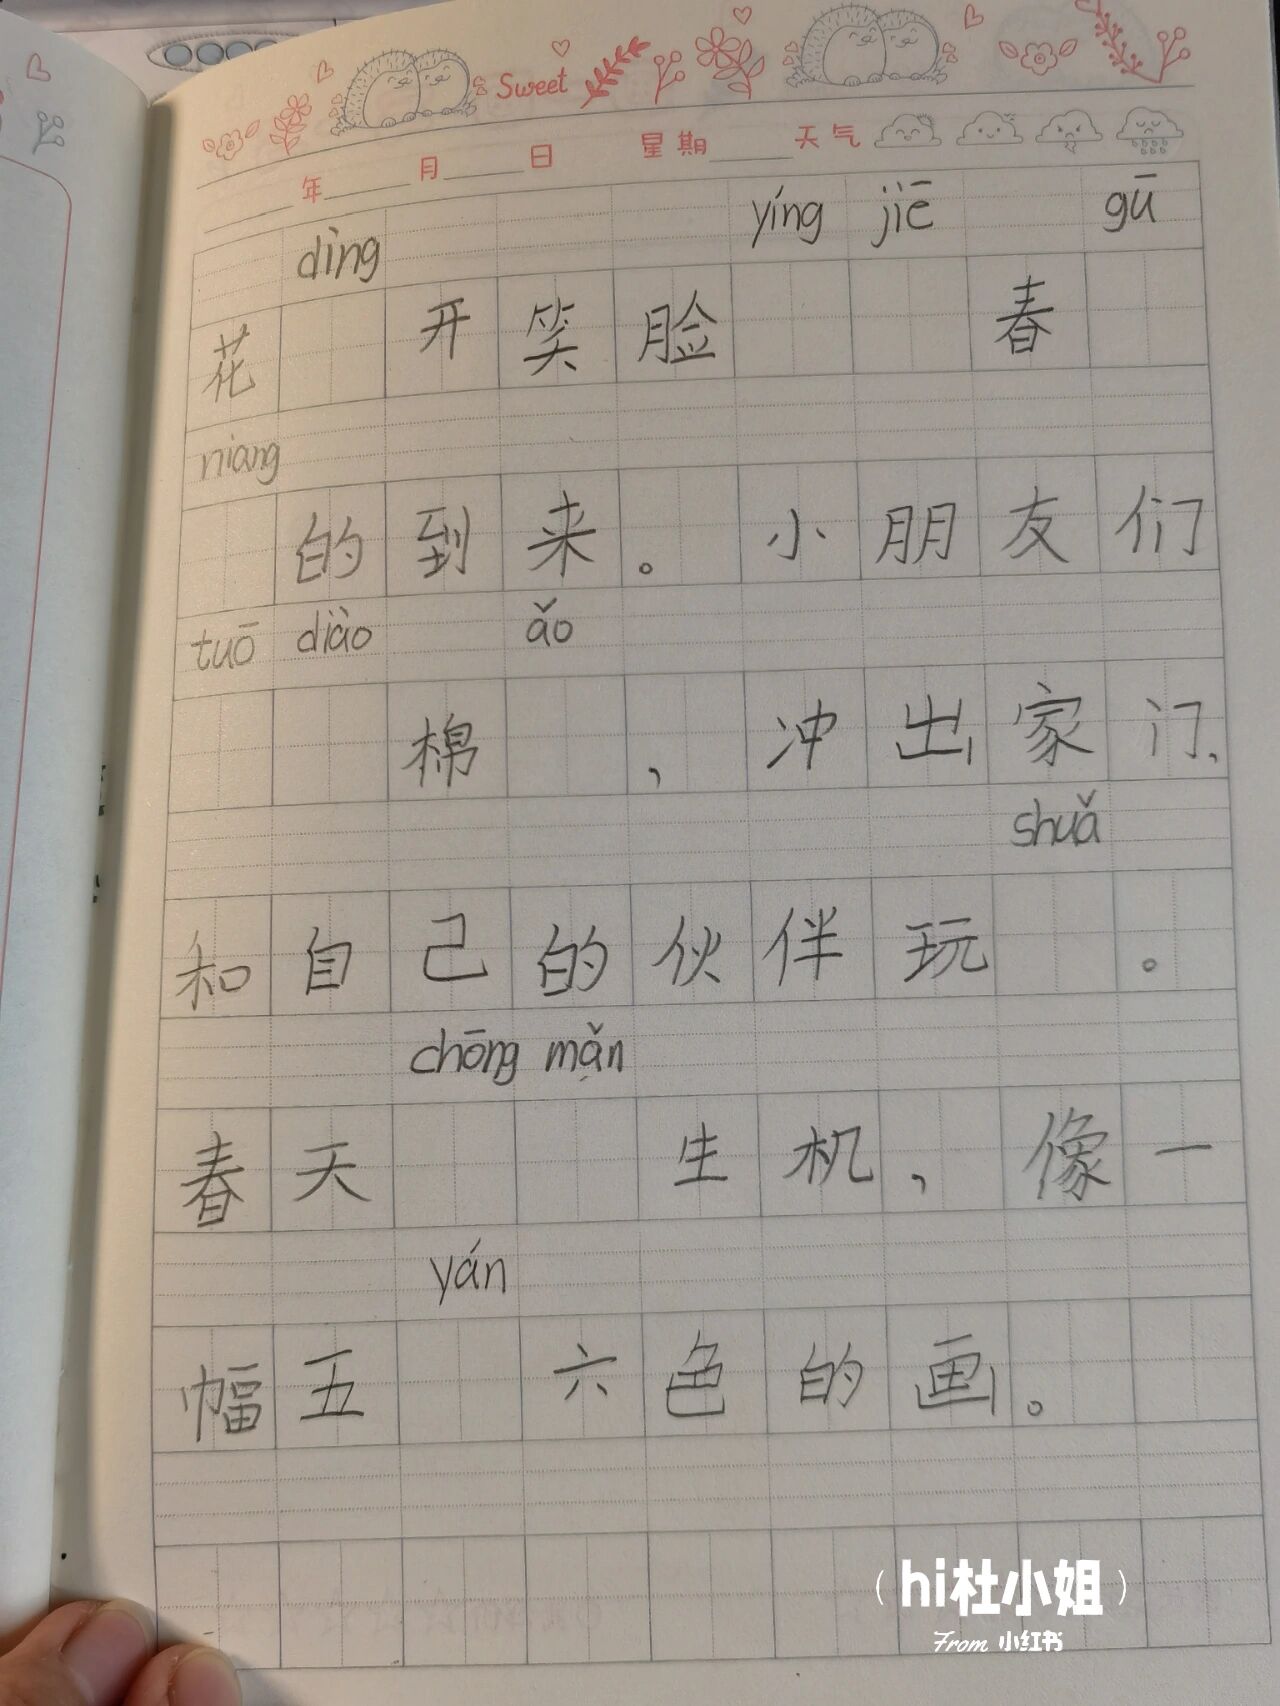 Sweet
年 月 日 星期 天气
dìng yíng jiē gū
花 开笑脸 春
niang
的到来。小朋友们
tuō diào ǎo
棉 ，冲出家门、
shuǎ
和自己的伙伴玩 。
chōng mǎn
春天 生机，像一
yán
幅五 六色的画。
(hi杜小姐)
From 小红书